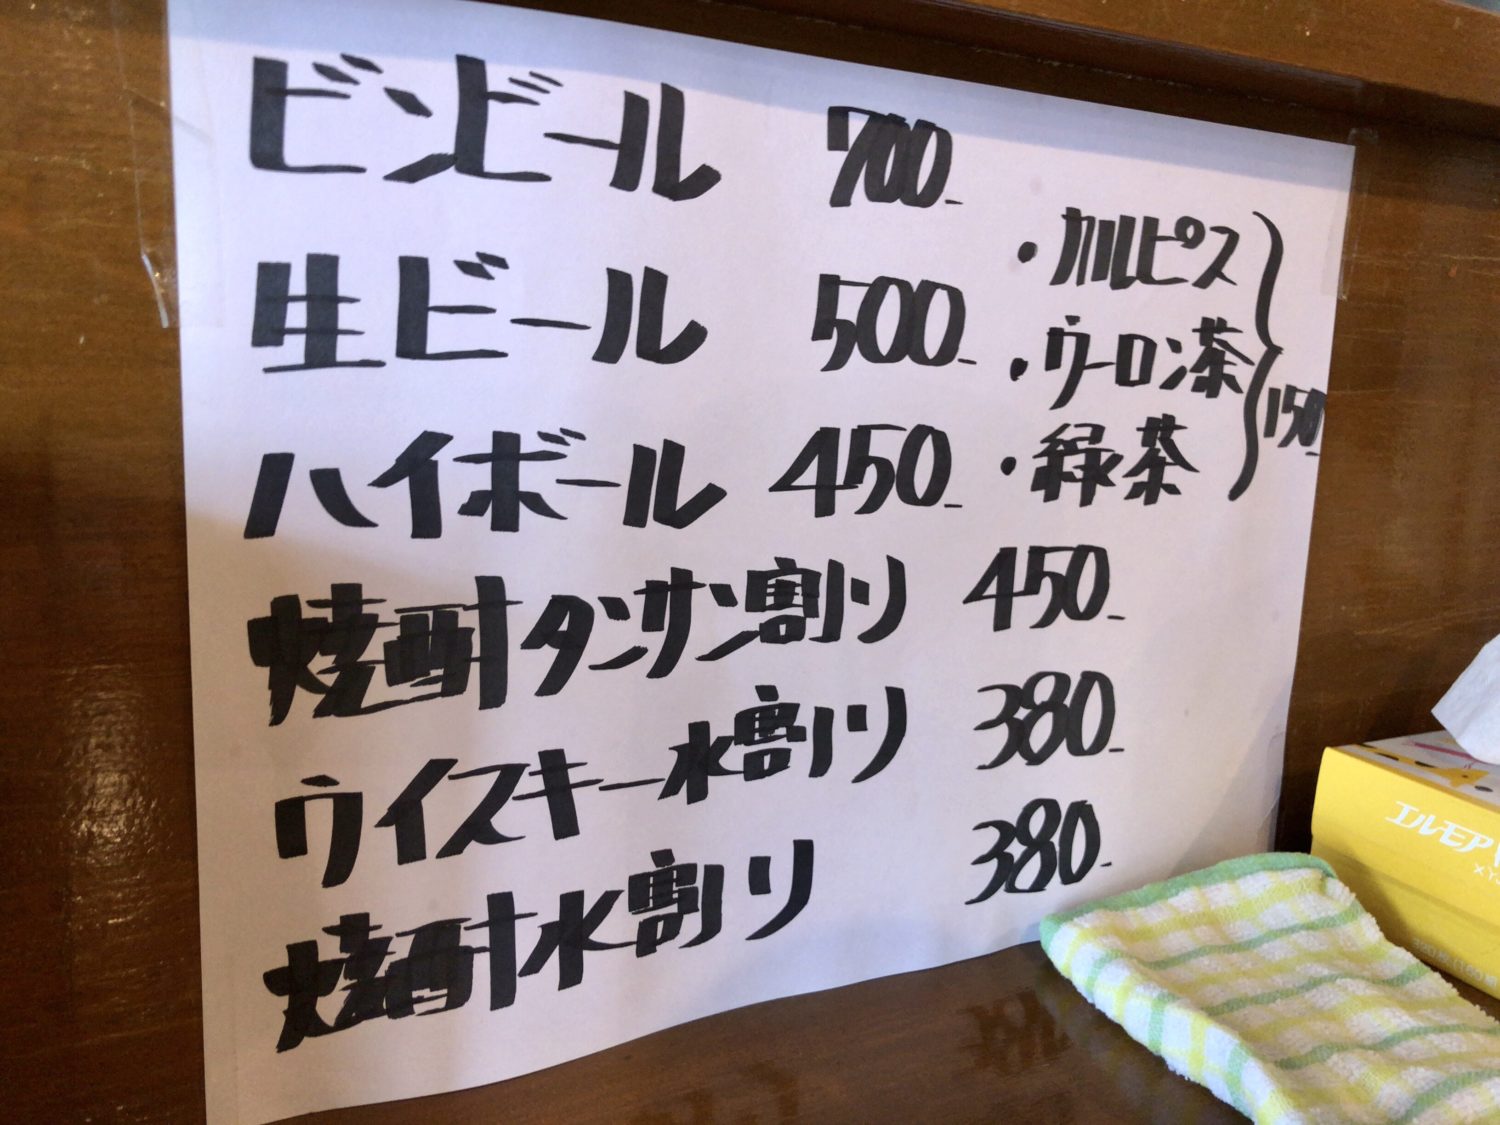 ビンビール 700-
生ビール 500-
ハイボール 450-
焼酎タンサン割り 450-
ウイスキー水割り 380-
焼酎水割り 380-
・カルピス
・ウーロン茶
・緑茶
150-
エルモア